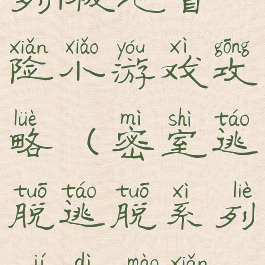 xiǎn xiǎo yóu xì gōng
险小游戏攻
lüè mì shì táo
略（密室逃
tuō táo tuō xì liè
脱逃脱系列
jí dì mào xiǎn